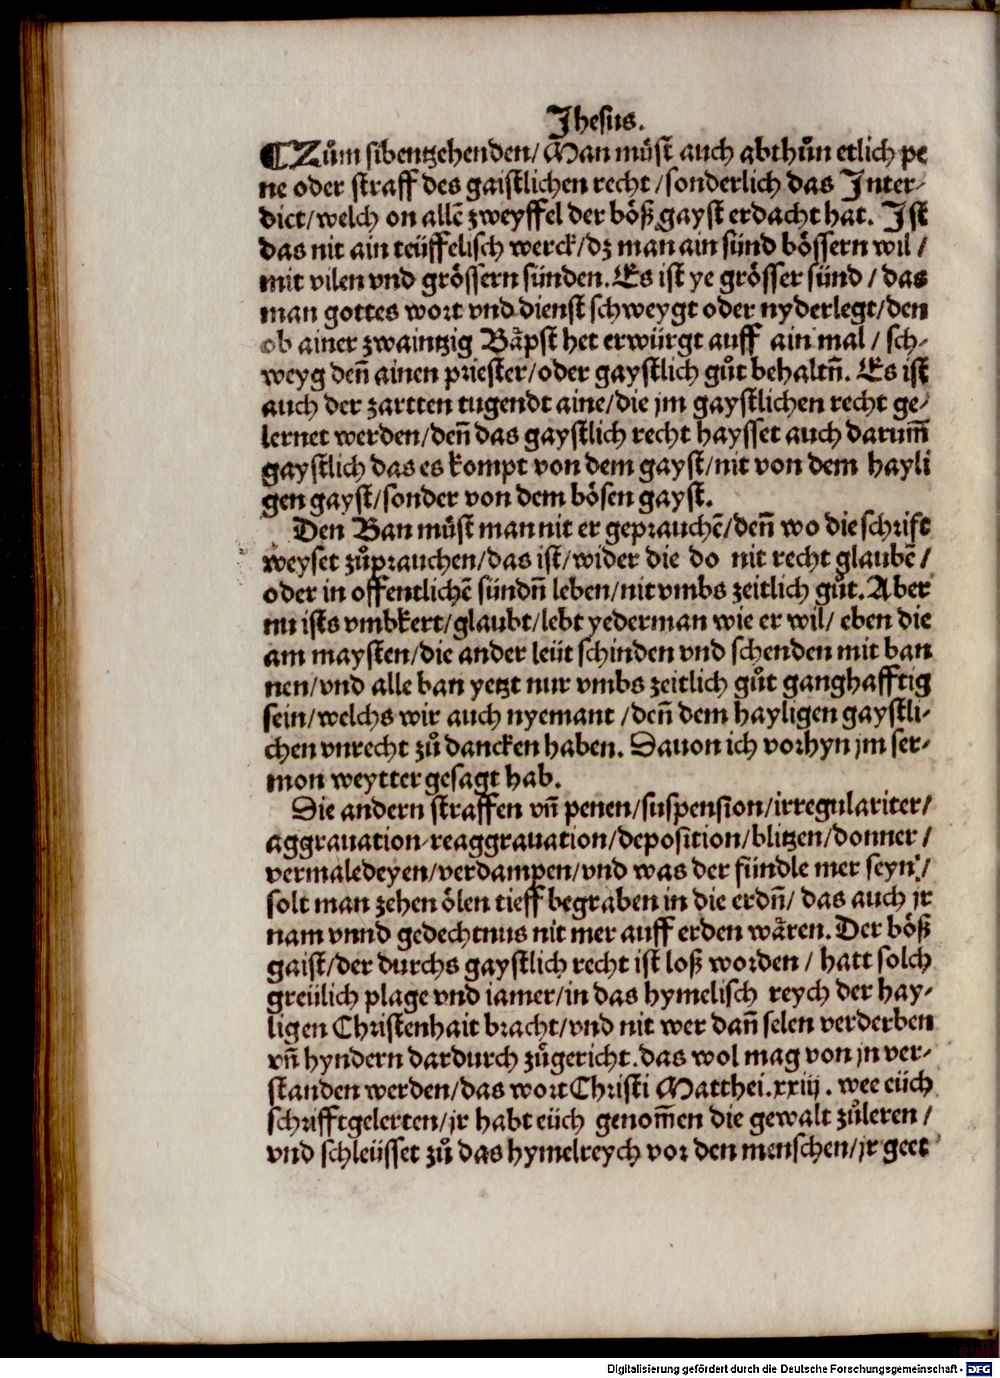 Jhesus.
¶Zům sibentzehenden/ Man můst auch abthůn etlich pe
ne oder straff des gaistlichen recht /sonderlich das Inter⸗
dict/welch on allẽ zweyffel der böß gayst erdacht hat. Ist
das nit ain teüffelisch werck/dz man ain sünd bössern wil /
mit vilen vnd grössern sünden. Es ist ye grösser sünd / das
man gottes wort vnd dienst schweygt oder nyderlegt/den
ob ainer zwaintzig Bäpst het erwürgt auff ain mal / sch⸗
weyg deñ ainen priester/oder gaystlich gůt behaltñ. Es ist
auch der zartten tugendt aine/die jm gaystlichen recht ge⸗
lernet werden/deñ das gaystlich recht haysset auch darum̃
gaystlich das es kompt von dem gayst/nit von dem hayli
gen gayst/sonder von dem bösen gayst.
Den Ban můst man nit er geprauchẽ/deñ wo die schrift
weyset zůprauchen/das ist/wider die do nit recht glaubẽ /
oder in offentlichẽ sündñ leben/nit vmbs zeitlich gůt. Aber
nu ists vmbkert/glaubt/lebt yederman wie er wil/ eben die
am maysten/die ander leüt schinden vnd schenden mit ban
nen/vnd alle ban yetzt nur vmbs zeitlich gůt ganghafftig
sein/welchs wir auch nyemant /deñ dem hayligen gaystli⸗
chen vnrecht zů dancken haben. Dauon ich vorhyn jm ser⸗
mon weytter gesagt hab.
Die andern straffen vñ penen/suspension/irregulariter/
aggrauation⸗reaggrauation/deposition/blitzen/donner /
vermaledeyen/verdampen/vnd was der fündle mer seyn /
solt man zehen ölen tieff begraben in die erdñ/ das auch jr
nam vnnd gedechtnus nit mer auff erden wären. Der böß
gaist/der durchs gaystlich recht ist loß worden / hatt solch
greülich plage vnd iamer/in das hymelisch reych der hay⸗
ligen Christenhait bracht/vnd nit wer dañ selen verderben
vñ hyndern dardurch zůgericht. das wol mag von jn ver⸗
standen werden/das wort Christi Matthei.xxiij. wee eüch
schrifftgelerten/jr habt eüch genom̃en die gewalt zůleren /
vnd schleüsset zů das hymelreych vor den menschen/jr geet
Digitalisierung gefördert durch die Deutsche Forschungsgemeinschaft - DFG